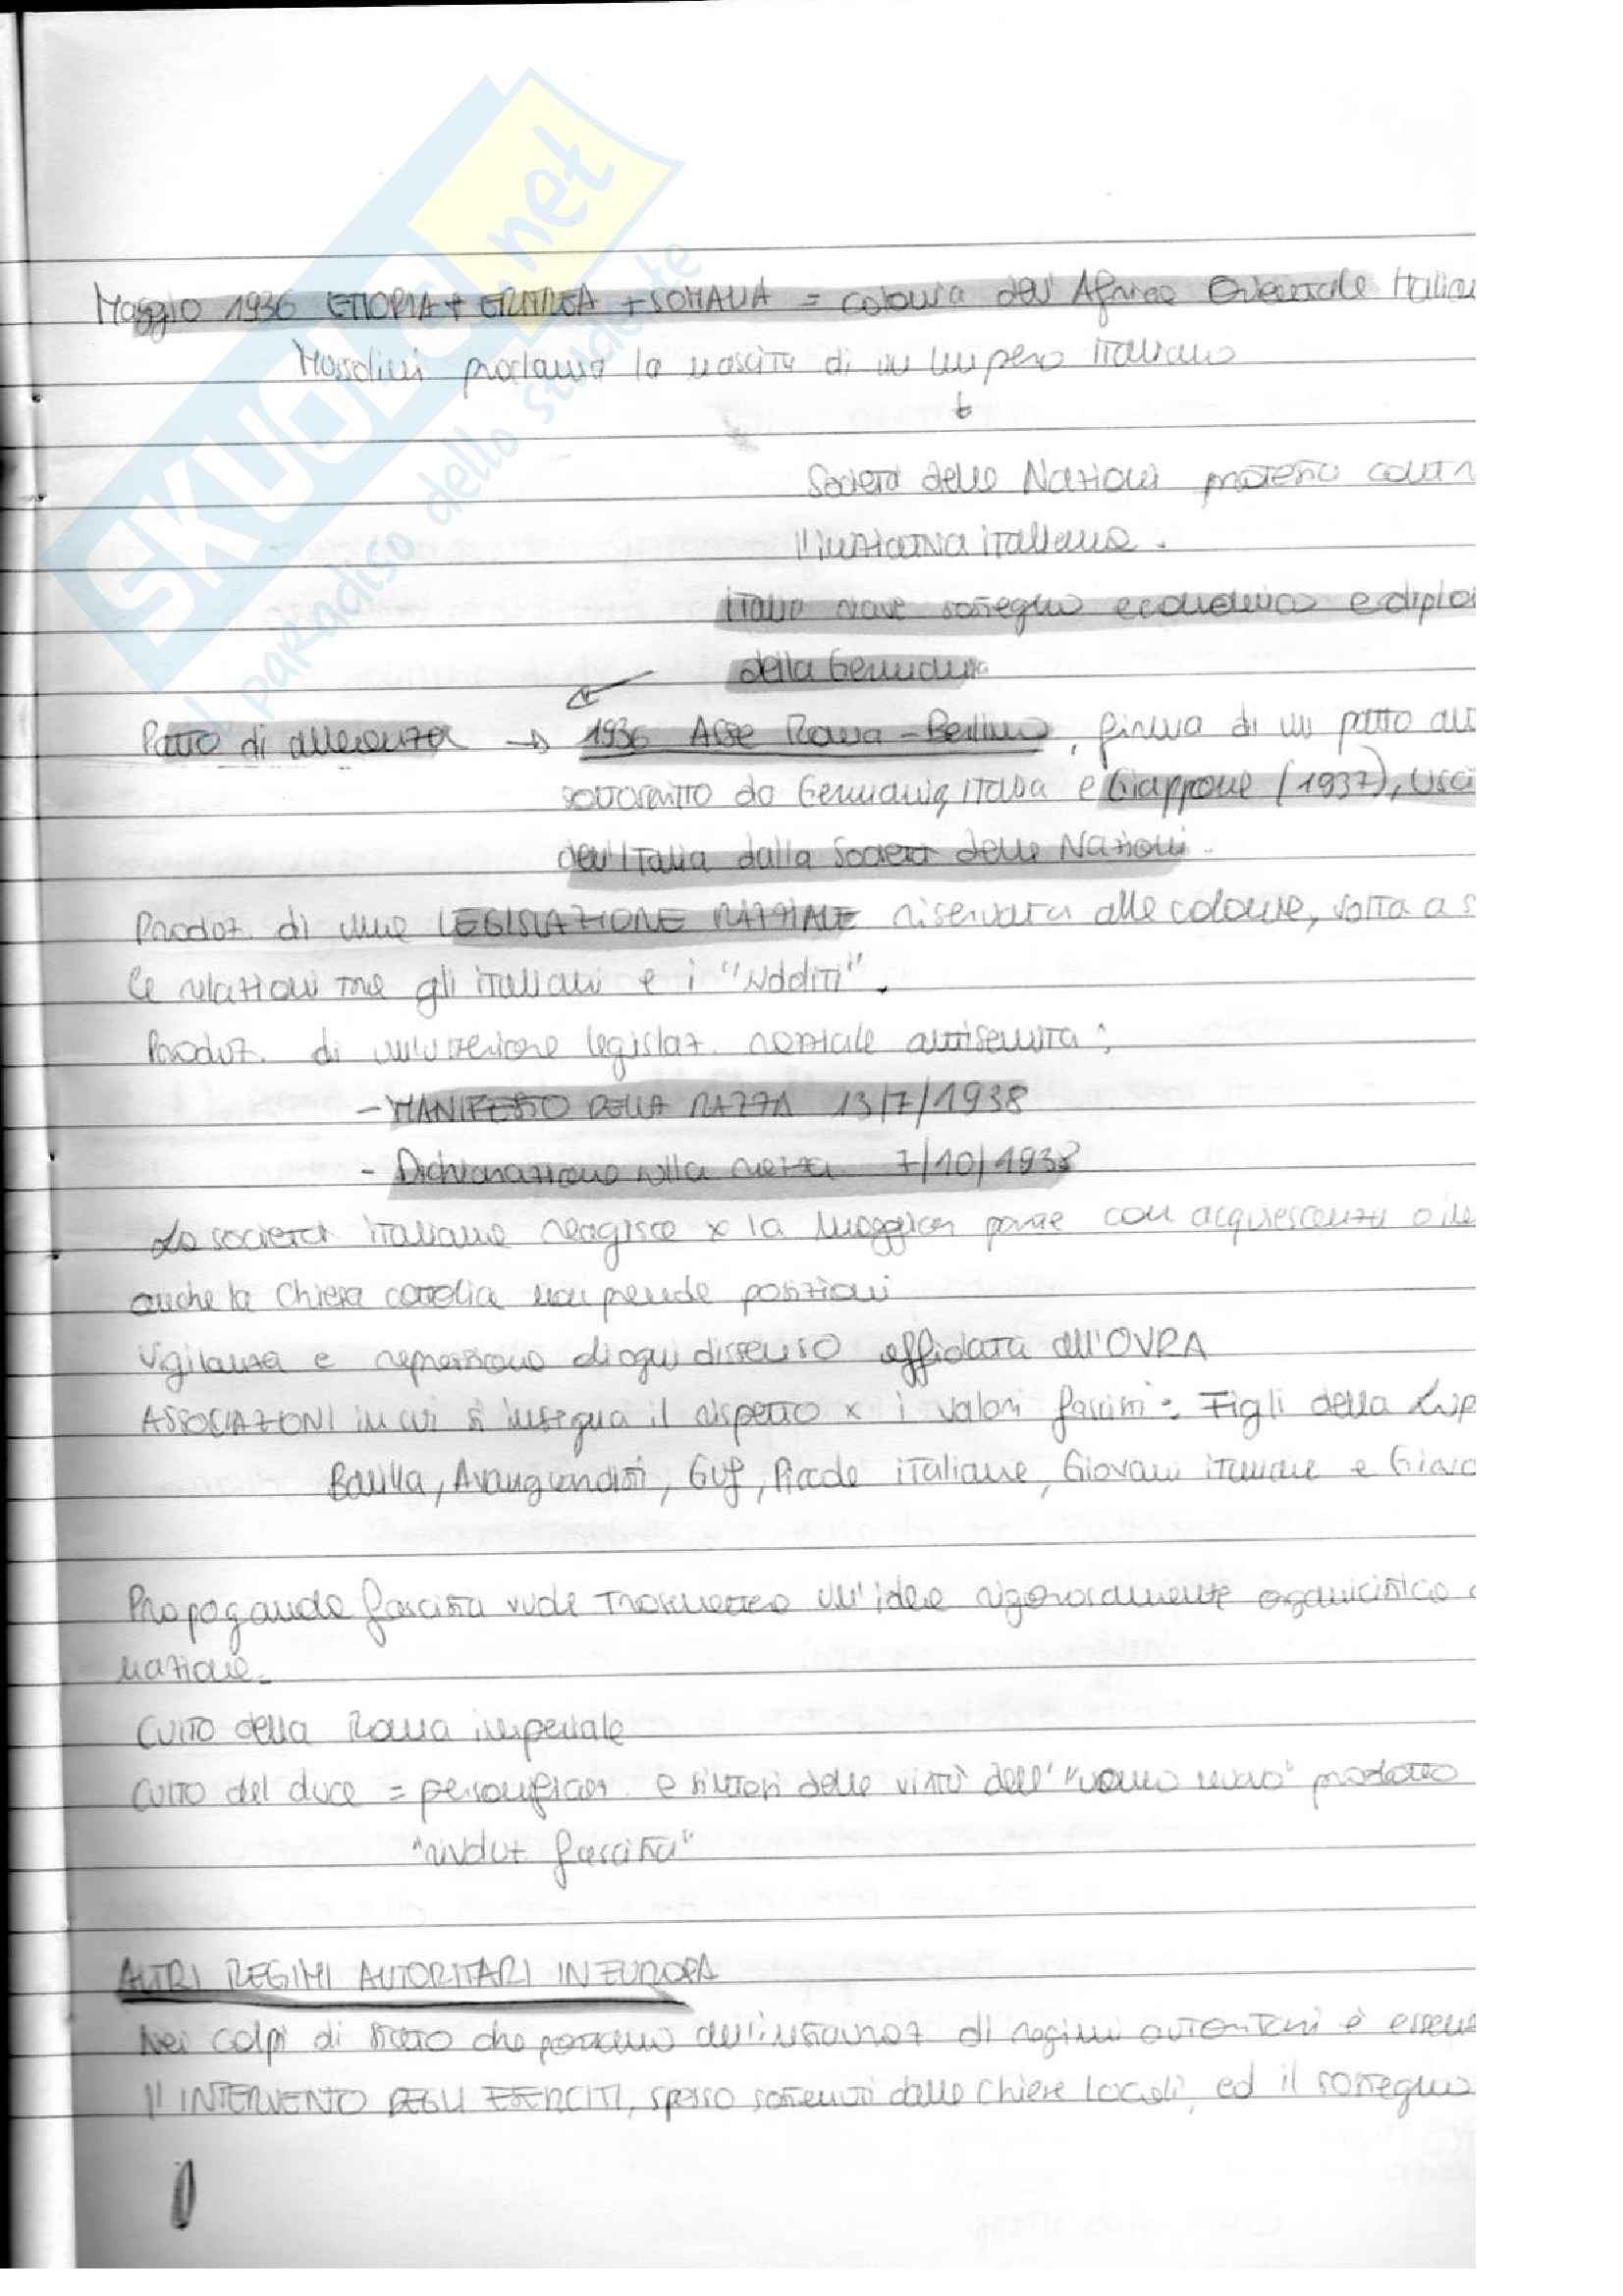 SKUOLA.net
il paradiso dello studente
Maggio 1936 ETIOPIA + ERITREA + SOMALIA = colonia dell'Africa Orientale Italian
Mussolini proclama la nascita di un Impero italiano
Società delle Nazioni protesta contr
l'iniziativa italiana.
Italia riceve sostegno economico e diplo
della Germania
Patto di alleanza → 1936 Asse Roma-Berlino, firma di un patto
sottoscritto da Germania, Italia e Giappone (1937), usci
dell'Italia dalla Società delle Nazioni.
Produz. di una LEGISLAZIONE RAZZIALE riservata alle colonie, volta a s
le relazioni tra gli italiani e i "sudditi".
Produz. di un'ulteriore legislaz. razziale antisemita:
- MANIFESTO DELLA RAZZA 13/7/1938
- Dichiarazione sulla razza 7/10/1938
La società italiana reagisce x la maggior parte con acquiescenza o
anche la Chiesa cattolica non prende posizioni
Vigilanza e repressione di ogni dissenso affidata all'OVRA
ASSOCIAZIONI in cui si insegna il rispetto x i valori fascisti: Figli della Lup
Balilla, Avanguardisti, Guf, Piccole italiane, Giovani italiane e Giova
Propaganda fascista vuole trasmettere un'idea rigorosamente organicistica
nazione.
Culto della Roma imperiale
Culto del duce = personificaz. e sintesi delle virtù dell'"uomo nuovo" prodotto
"rivoluz fascista"
ALTRI REGIMI AUTORITARI IN EUROPA
Nei colpi di stato che portano all'instauraz di regimi autoritari è essenz
l'INTERVENTO DEGLI ESERCITI, spesso sostenuti dalle Chiese locali, ed il sostegno